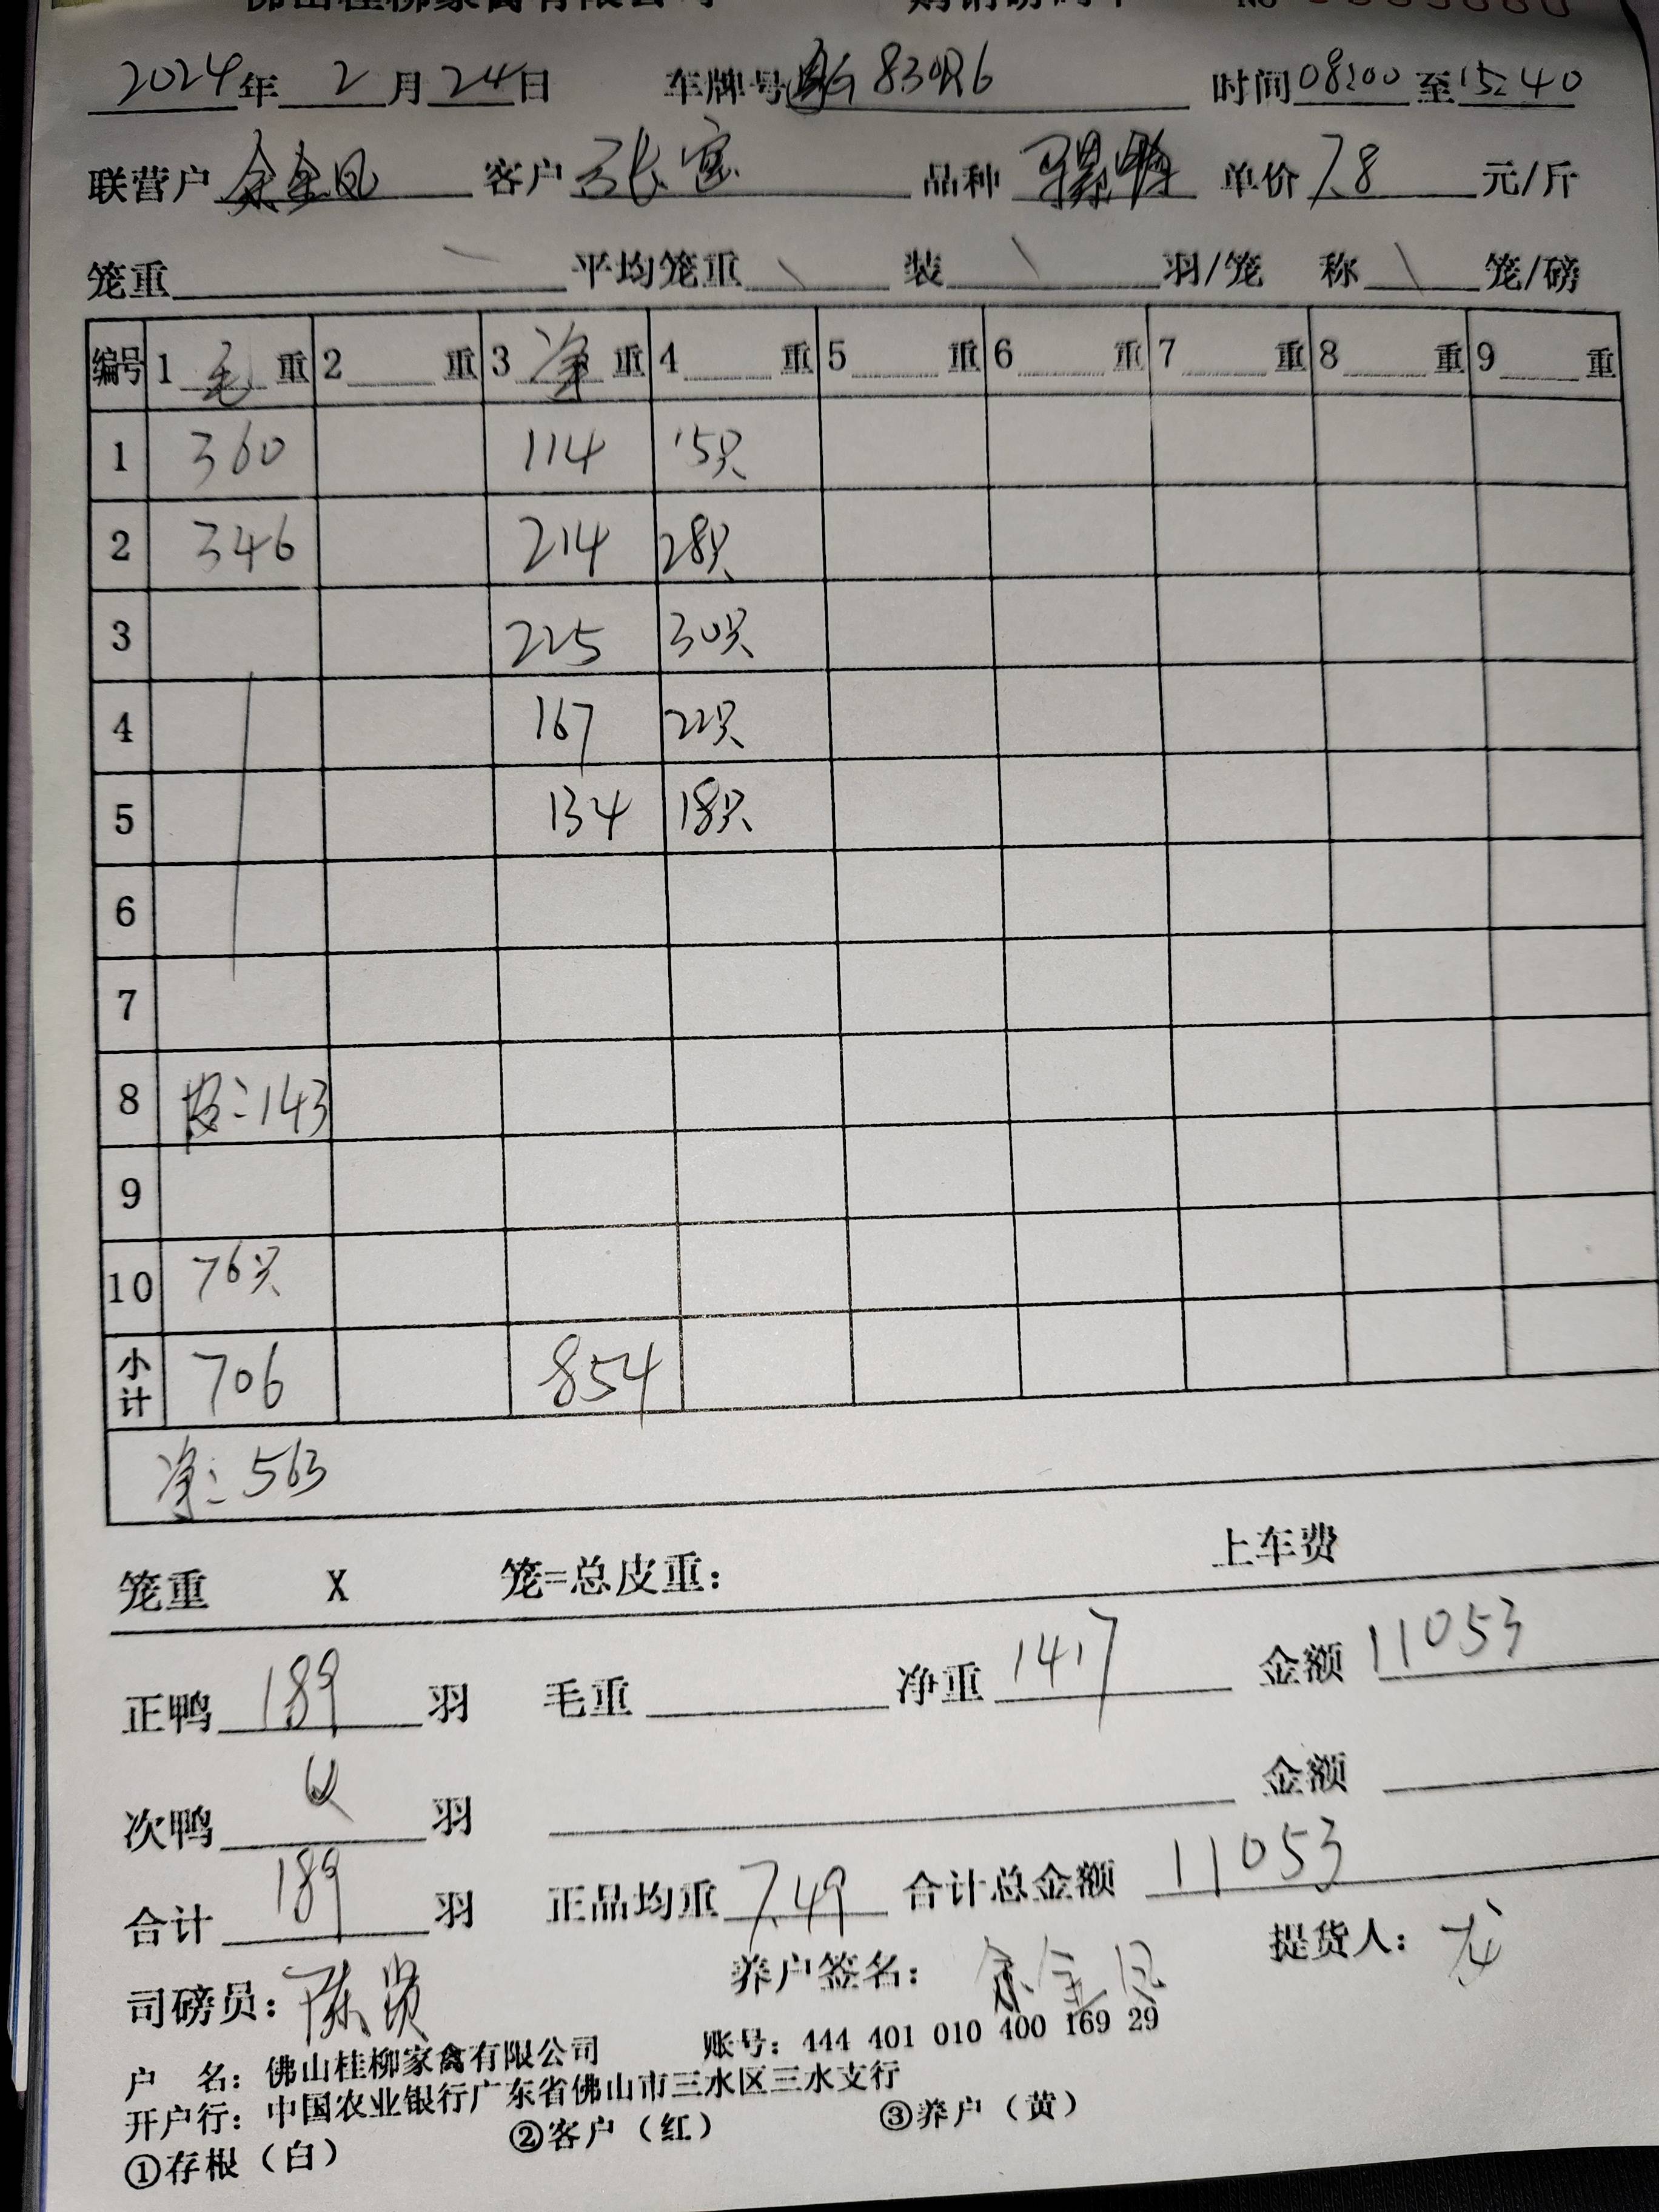 佛山桂柳家禽有限公司
2024年 2 月 24 日 车牌号 830R6 时间 08:00 至 15:40
联营户 余金凤 客户 张 品种 单价 7.8 元/斤
笼重 \ 平均笼重 \ 装 \ 羽/笼 称 \ 笼/磅
编号 1 毛 重 2 重 3 净 重 4 重 5 重 6 重 7 重 8 重 9 重
1 360 114 15只
2 346 214 28只
3 225 30只
4 167 22只
5 134 18只
6
7
8 皮:143
9
10 76只
小计 706 854
净:563
笼重 X 笼=总皮重: 上车费
正鸭 189 羽 毛重 净重 1417 金额 11053
次鸭 羽 金额
合计 189 羽 正品均重 7.49 合计总金额 11053
司磅员:陈贤 养户签名:余金凤 提货人:龙
户 名:佛山桂柳家禽有限公司 账号:444 401 010 400 169 29
开户行:中国农业银行广东省佛山市三水区三水支行
①存根(白) ②客户(红) ③养户(黄)